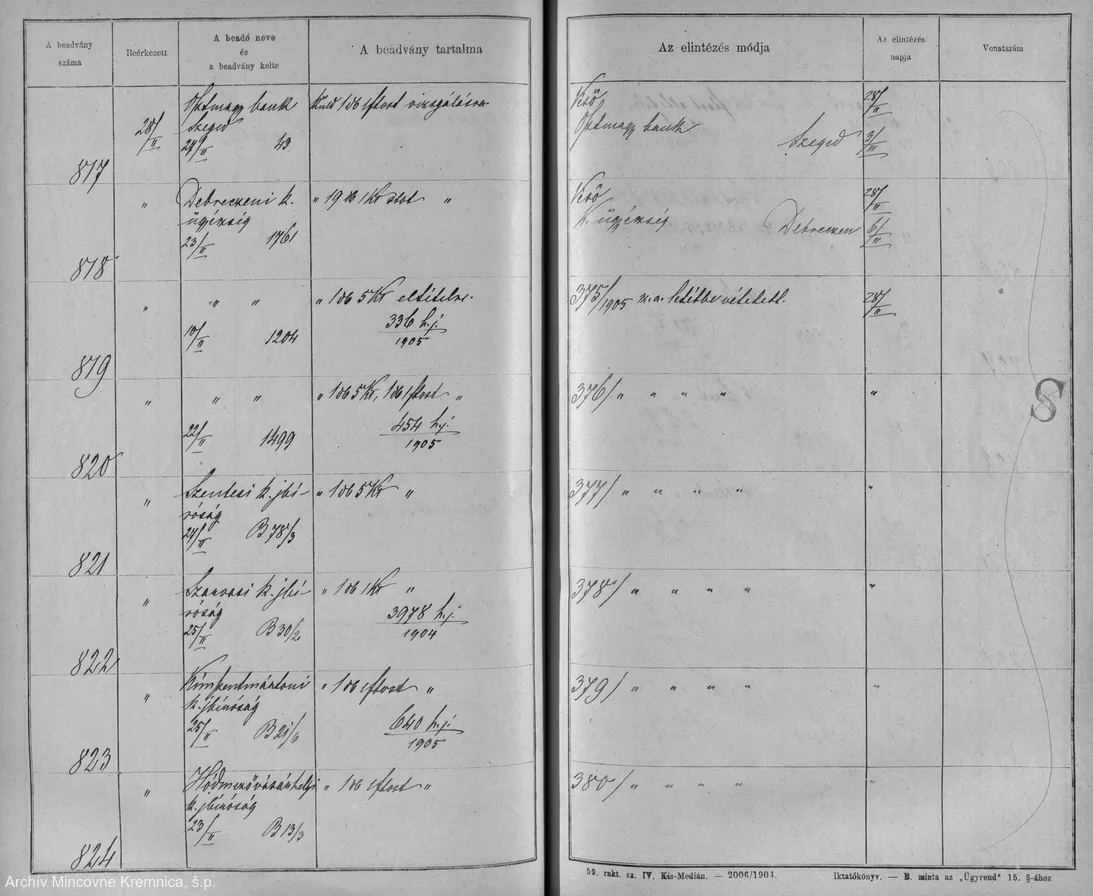 A beadvány száma
Beérkezett
A beadó neve és a beadvány kelte
A beadvány tartalma
Az elintézés módja
Az elintézés napja
Vonatszám
817
28/II
bank
Szeged
24/II 43
Küld 1 db 1 ftost vizsgálásra
Veiő
bank
Szeged
28/II
3/III
818
"
Debreczeni k. ügyészség
23/II 1761
" 19 db 1 Kr "
k. ügyészség
Debreczen
28/II
6/III
819
"
" "
1204
" 1 db 5 Kr
336 h.j./1905
375/1905 letétbe vétetett.
28/II
820
"
" "
22/II 1499
" 1 db 5 Kr, 1 db 1 ftost "
454 h.j./1905
376/ " " " "
"
821
"
Szentesi k. jbíróság
24/II B 78/3
" 1 db 5 Kr "
377/ " " " "
"
822
"
Szarvasi k. jbíróság
25/II B 30/2
" 1 db 1 Kr "
3978 h.j./1904
378/ " " " "
"
823
"
k. jbíróság
25/II
" 1 db 1 ftost "
640 h.j./1905
379/ " " " "
"
824
"
Hódmezővásárhelyi k. jbíróság
23/II B 13/3
" 1 db 1 ftost "
380/ " " " "
"
S
59. rakt. sz. IV. Kis-Medián. — 2006/1904.
Iktatókönyv. — B. minta az „Ügyrend" 15. §-ához
Archív Mincovne Kremnica, š.p.